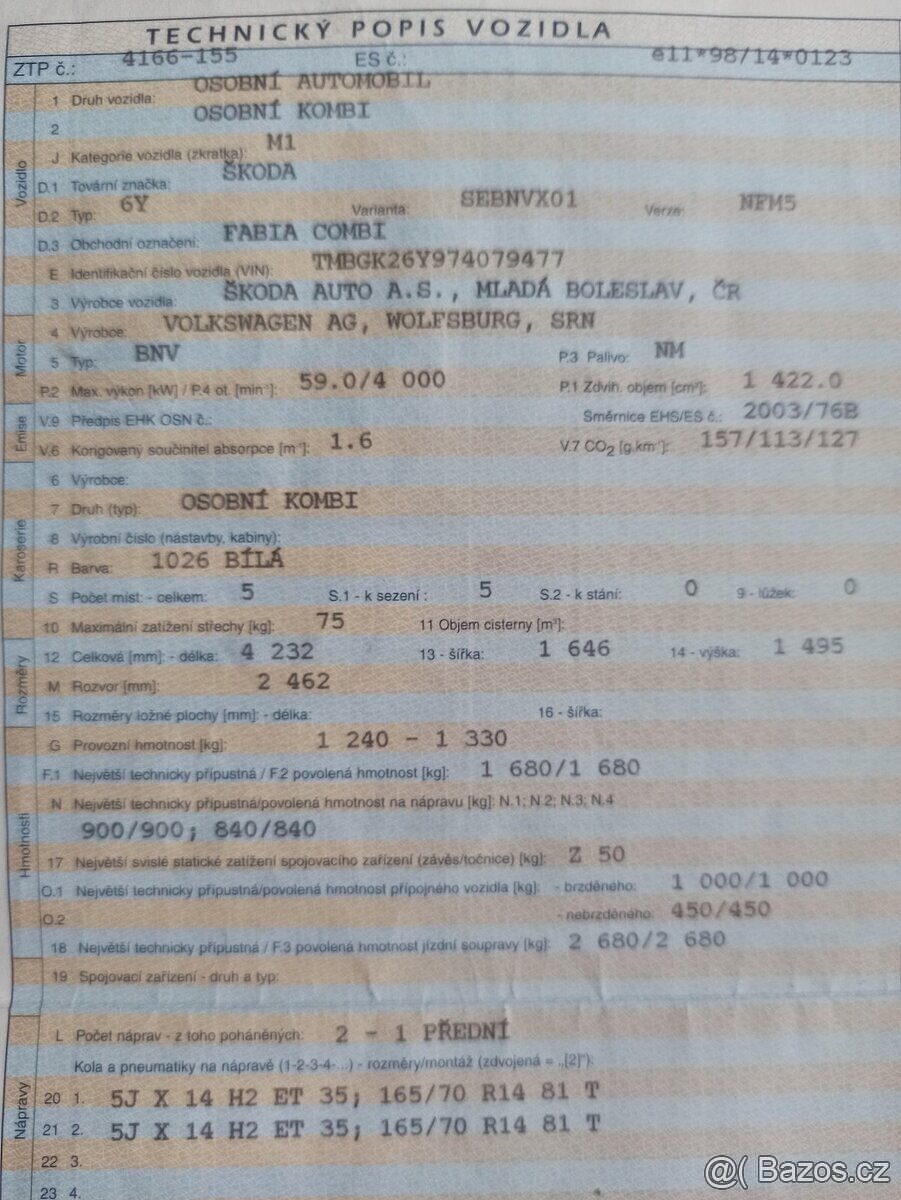 TECHNICKÝ POPIS VOZIDLA
ZTP č.: 4166-155 ES č.: e11*98/14*0123
1 Druh vozidla: OSOBNÍ AUTOMOBIL
2 OSOBNÍ KOMBI
J Kategorie vozidla (zkratka): M1
D.1 Tovární značka: ŠKODA
D.2 Typ: 6Y Varianta: SEBNVX01 Verze: NFM5
D.3 Obchodní označení: FABIA COMBI
E Identifikační číslo vozidla (VIN): TMBGK26Y974079477
3 Výrobce vozidla: ŠKODA AUTO A.S., MLADÁ BOLESLAV, ČR
4 Výrobce: VOLKSWAGEN AG, WOLFSBURG, SRN
5 Typ: BNV P.3 Palivo: NM
P.2 Max. výkon [kW] / P.4 ot. [min⁻¹]: 59.0/4 000 P.1 Zdvih. objem [cm³]: 1 422.0
V.9 Předpis EHK OSN č.: Směrnice EHS/ES č.: 2003/76B
V.6 Korigovaný součinitel absorpce [m⁻¹]: 1.6 V.7 CO₂ [g.km⁻¹]: 157/113/127
6 Výrobce:
7 Druh (typ): OSOBNÍ KOMBI
8 Výrobní číslo (nástavby, kabiny):
R Barva: 1026 BÍLÁ
S Počet míst: - celkem: 5 S.1 - k sezení : 5 S.2 - k stání: 0 9 - lůžek: 0
10 Maximální zatížení střechy [kg]: 75 11 Objem cisterny [m³]:
12 Celková [mm]: - délka: 4 232 13 - šířka: 1 646 14 - výška: 1 495
M Rozvor [mm]: 2 462
15 Rozměry ložné plochy [mm]: - délka: 16 - šířka:
G Provozní hmotnost [kg]: 1 240 - 1 330
F.1 Největší technicky přípustná / F.2 povolená hmotnost [kg]: 1 680/1 680
N Největší technicky přípustná/povolená hmotnost na nápravu [kg]: N.1; N.2; N.3; N.4
900/900; 840/840
17 Největší svislé statické zatížení spojovacího zařízení (závěs/točnice) [kg]: Z 50
O.1 Největší technicky přípustná/povolená hmotnost přípojného vozidla [kg]: - brzděného: 1 000/1 000
O.2 - nebrzděného: 450/450
18 Největší technicky přípustná / F.3 povolená hmotnost jízdní soupravy [kg]: 2 680/2 680
19 Spojovací zařízení - druh a typ:
L Počet náprav - z toho poháněných: 2 - 1 PŘEDNÍ
Kola a pneumatiky na nápravě (1-2-3-4-...) - rozměry/montáž (zdvojená = „[2]"):
20 1. 5J X 14 H2 ET 35; 165/70 R14 81 T
21 2. 5J X 14 H2 ET 35; 165/70 R14 81 T
22 3.
23 4.
Vozidlo
Motor
Emise
Karoserie
Rozměry
Hmotnosti
Nápravy
@( Bazos.cz